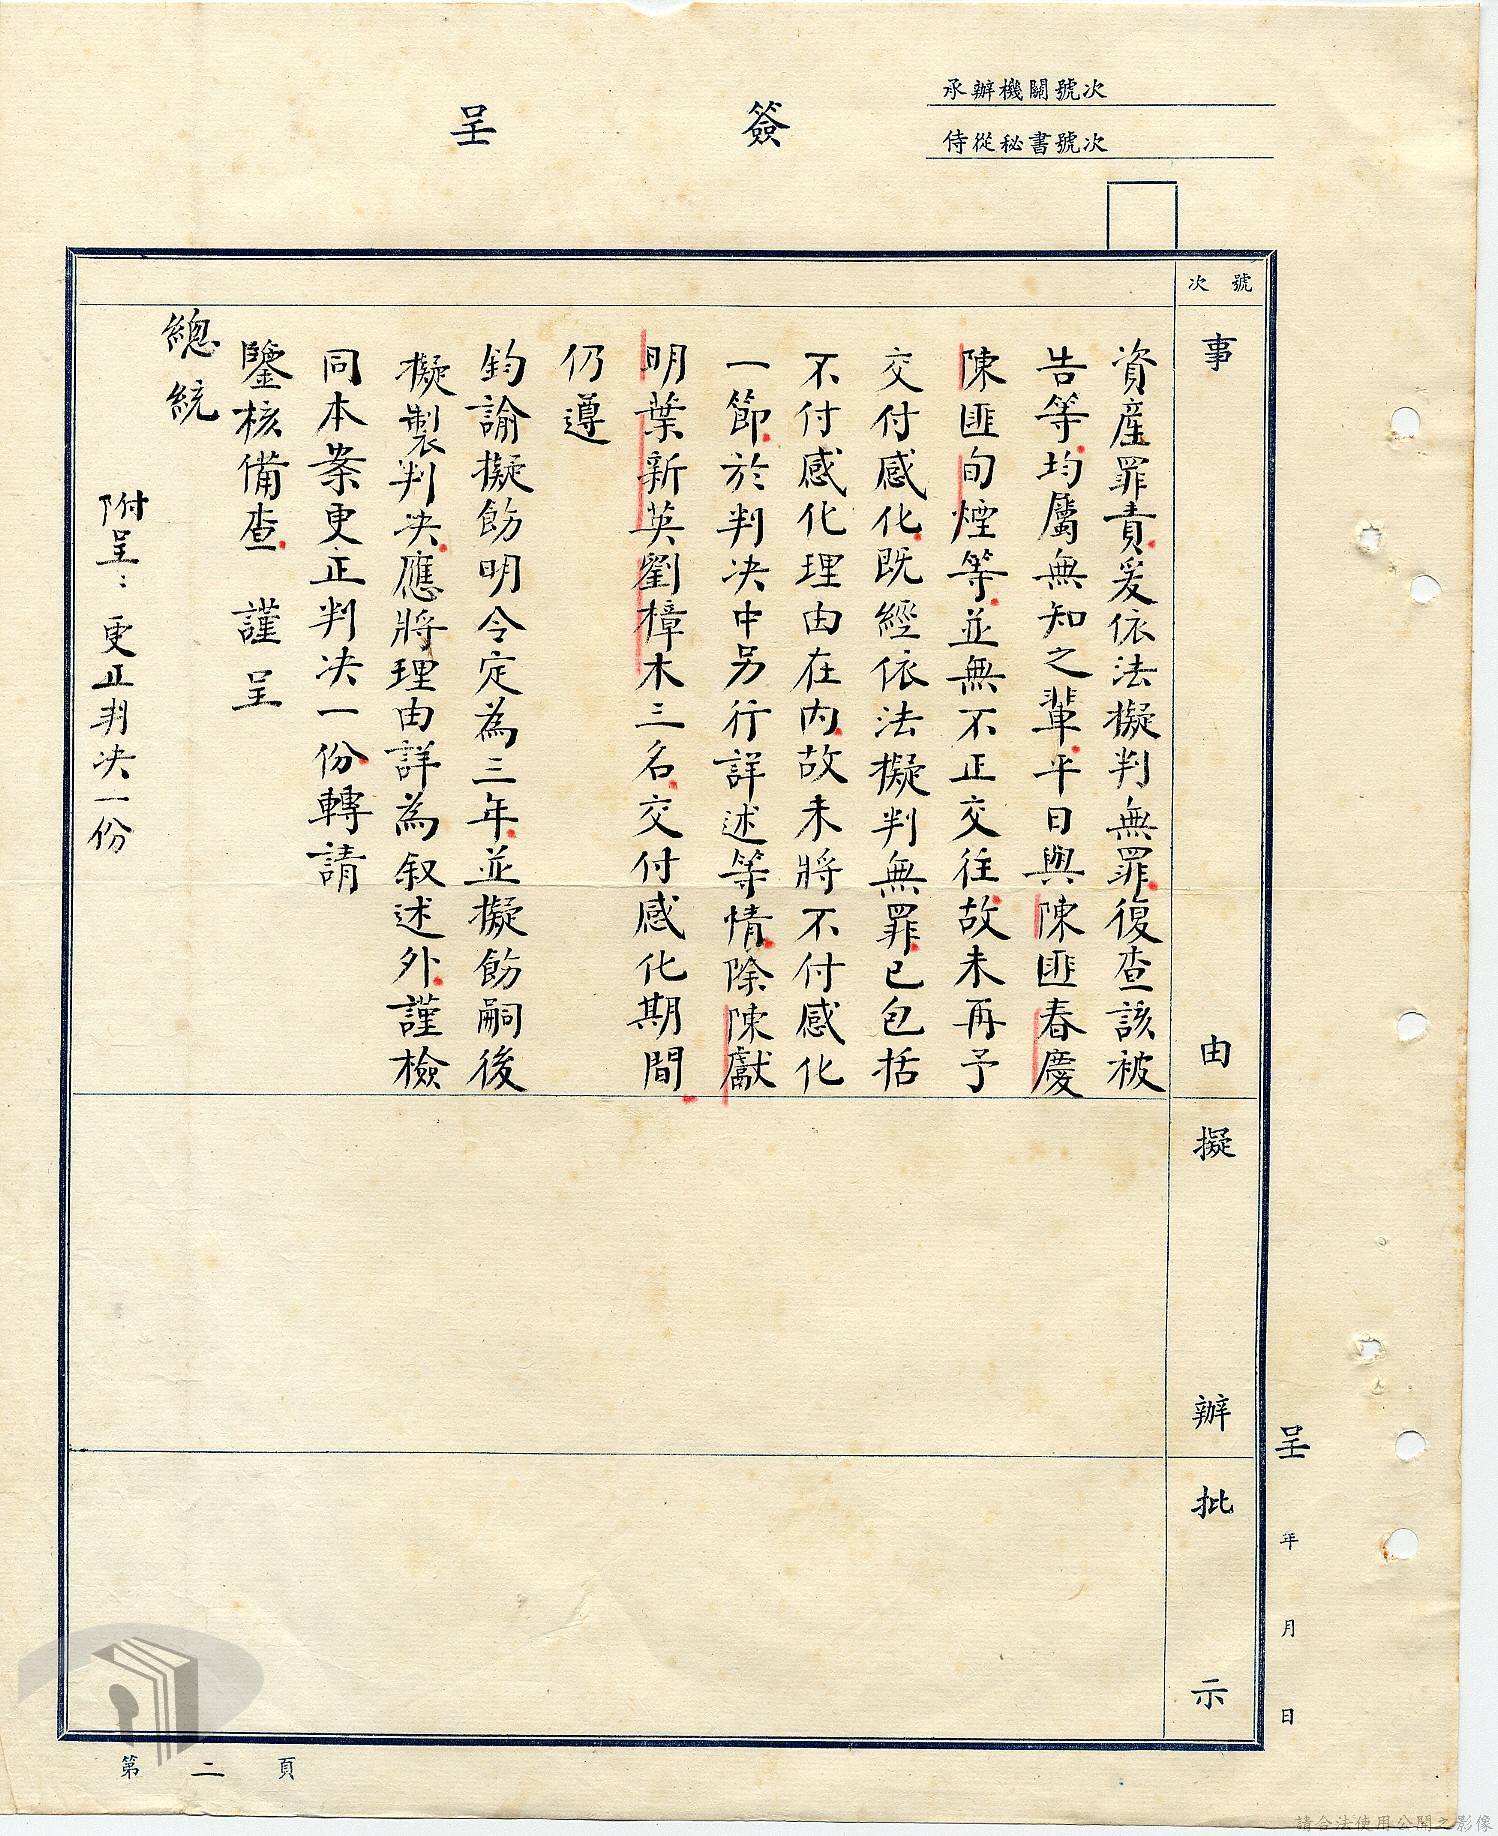 簽呈
承辦機關號次
侍從秘書號次
號次
事由
擬辦
批示
資產罪責爰依法擬判無罪復查該被
告等均屬無知之輩平日與陳匪春慶
陳匪旬煙等並無不正交往故未再予
交付感化既經依法擬判無罪已包括
不付感化理由在內故未將不付感化
一節於判決中另行詳述等情除陳獻
明葉新英劉樟木三名交付感化期間
仍遵
鈞諭擬飭明令定為三年並擬飭嗣後
擬製判決應將理由詳為叙述外謹檢
同本案更正判決一份轉請
鑒核備查 謹呈
總統
附呈：更正判決一份
呈 年 月 日
第二頁
請合法使用公開之影像